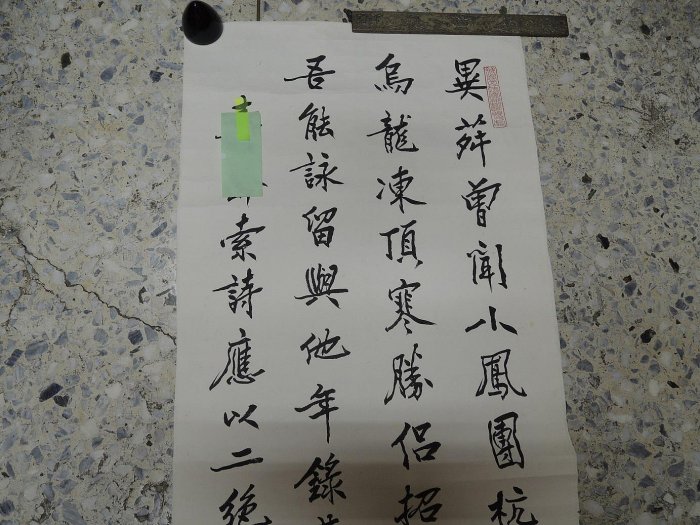 異荈曾聞小鳳團杭
烏龍凍頂寒勝侶招
吾能詠留與他年錄
索詩應以二絕